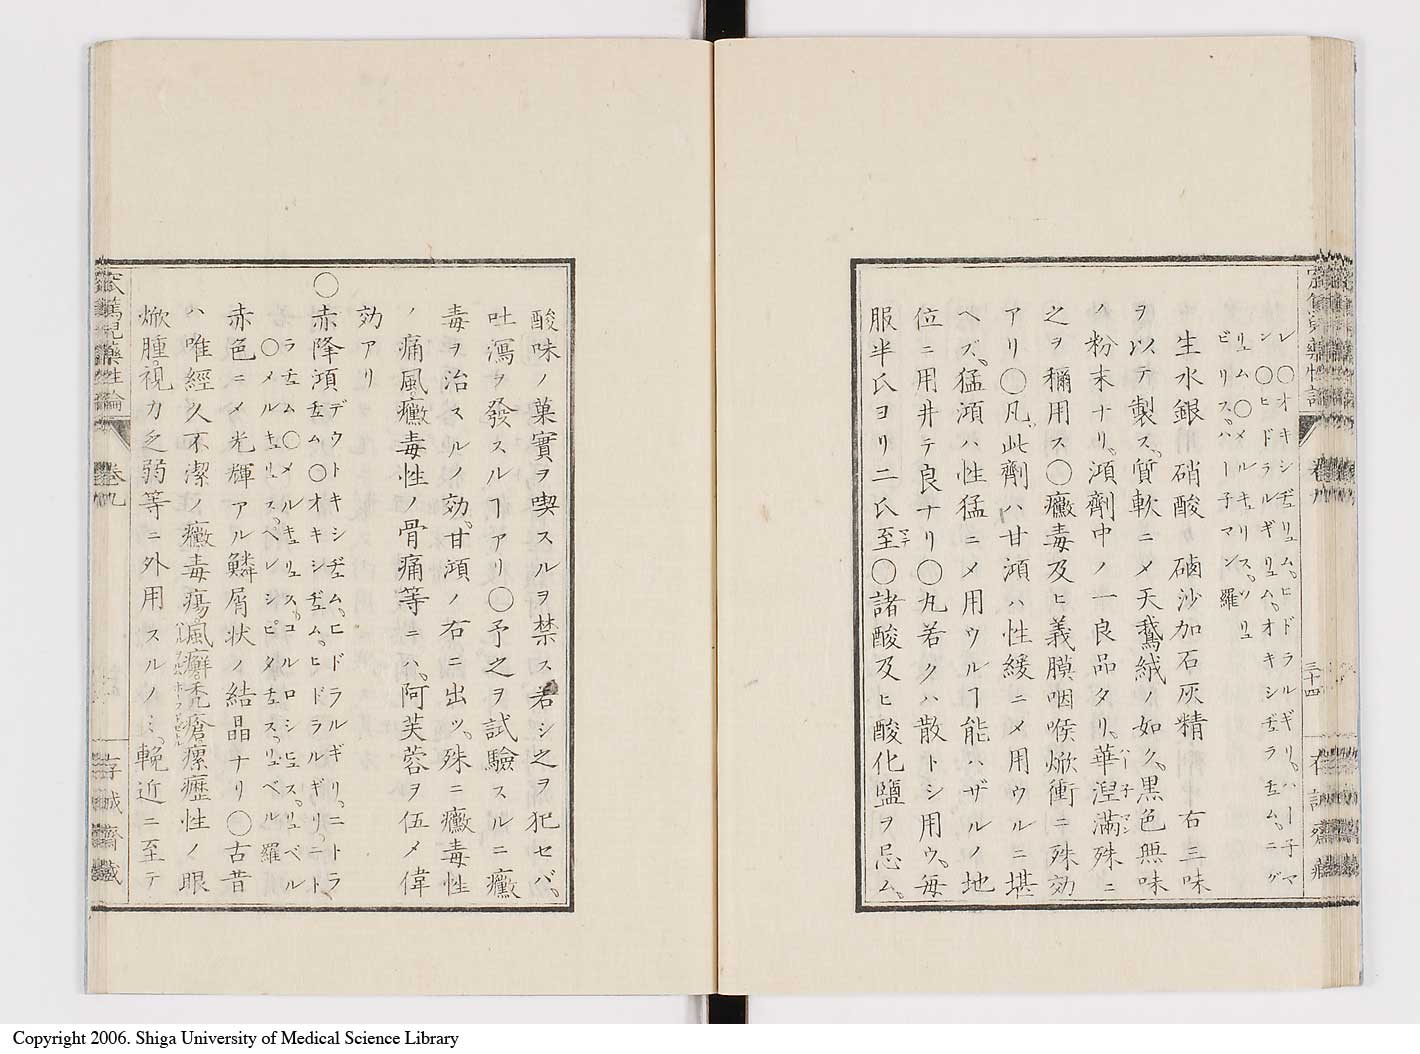 レ〇オキシヂェリュム、ヒドラルギリ、ハー子マ
ン〇ヒドラルギリュム、オキシヂェラチュム、ニグ
リュム〇メルキュリス、ソリュ
ビリス、ハー子マン 羅
生水銀 硝酸 磠沙加石灰精 右三味
ヲ以テ製ス、質軟ニメ天鵞絨ノ如ク、黒色無味
ノ粉末ナリ、澒劑中ノ一良品タリ、華涅満殊ニ
之ヲ稱用ス〇黴毒及ヒ義膜咽喉焮衝ニ殊効
アリ〇凡此劑ハ甘澒ハ性緩ニメ用ウルニ堪
ヘズ、猛澒ハ性猛ニメ用ツルヿ能ハザルノ地
位ニ用井テ良ナリ〇丸若クハ散トシ用ウ、毎
服半氏ヨリ二氏至〇諸酸及ヒ酸化鹽ヲ忌ム、
三十四
酸味ノ菓實ヲ喫スルヲ禁ス若シ之ヲ犯セバ、
吐瀉ヲ發スルヿアリ〇予之ヲ試驗スルニ黴
毒ヲ治スルノ効、甘澒ノ右ニ出ツ、殊ニ黴毒性
ノ痛風、黴毒性ノ骨痛等ニハ、阿芙蓉ヲ伍メ偉
効アリ
〇赤降澒 デウトキシヂェム、ヒドラルギリ、ニトラ
チュム〇オキシヂェム、ヒドラルギリ、ニト
ラチュム〇メルキュリュス、コルロシヒュス、リュベル
〇メルキュリュス、ペレシピタチュス、リュベル 羅
赤色ニメ光輝アル鱗屑状ノ結晶ナリ〇古昔
ハ唯經久不潔ノ黴毒瘍、風癬、禿瘡、瘰癧性ノ眼
焮腫、視力乏弱等ニ外用スルノミ、輓近ニ至テ
窊篤児藥性論
卷九